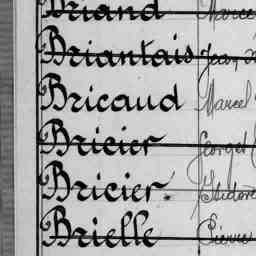 Briand Marce
Briantais Jean
Bricaud Marcel
Bricier Georget
Bricier. Isidore
Brielle Pierre